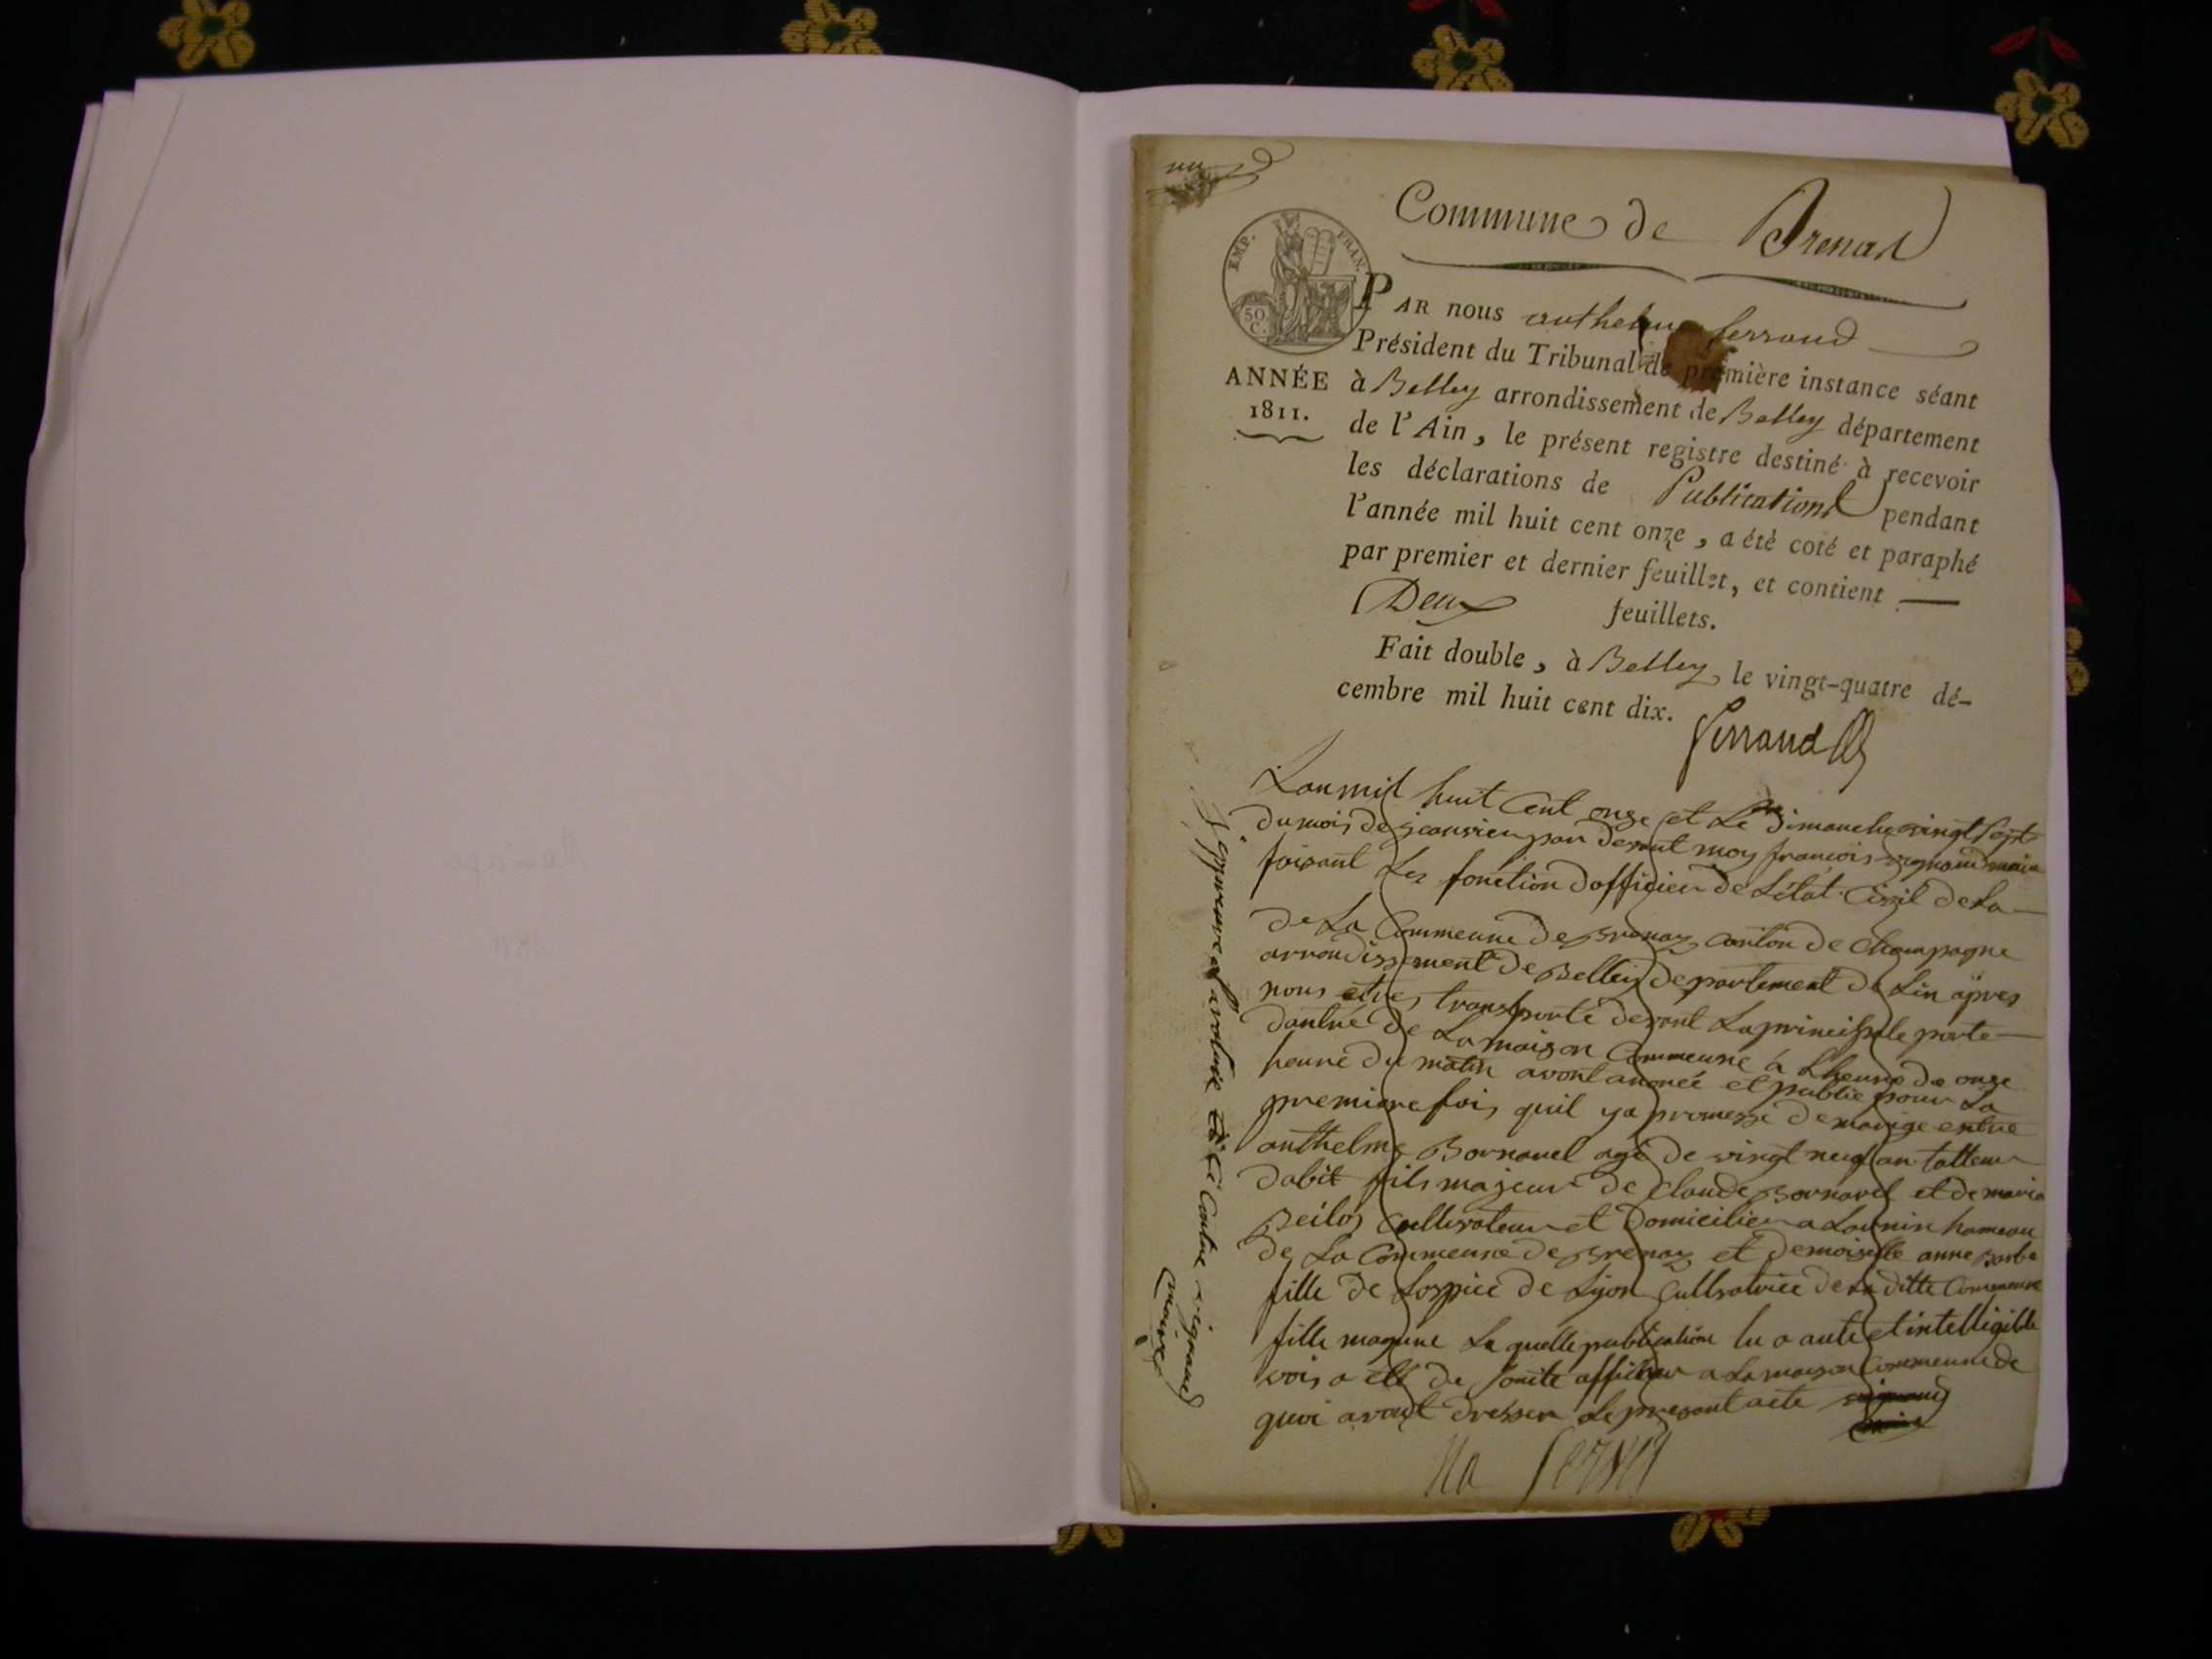 un
Commune de Brenas
EMP. FRAN.
50 C.
PAR nous anthelme ferrand
Président du Tribunal de première instance séant
ANNÉE
1811.
à Belley arrondissement de Belley département
de l'Ain, le présent registre destiné à recevoir
les déclarations de Publications pendant
l'année mil huit cent onze, a été coté et paraphé
par premier et dernier feuillet, et contient —
Deux feuillets.
Fait double, à Belley le vingt-quatre dé-
cembre mil huit cent dix.
ferrand
Lan mil huit Cent onze et Le Dimanche vingt sept
du mois de jeanvier par devant moy francois vignand maire
foisant Les fonction dofficier de Létat Civil de La
de La Commeune de Brenaz canton de Champagne
arrondissement de Belley departement de Lin apres
nous etres transporté devant La principale porte
dantré de La maison Commeune à Lheure de onze
heure du matin avont anoncé et publié pour La
premiere fois quil ya promesse de marige entre
anthelme Bornarel agé de vingt neuf an talleur
dabit fils majeur de Claude Bornarel et de marie
Beilos Cultivateur et Domicilier a Lounin hameau
de La Commeune de Brenaz et demoiselle anne Barbe
fille de Lospice de Lyon Cultivatrice de La ditte Commeune
fille majeure La quelle publication lu a aute et intelligible
vois a été de souite afficher a La maison Commeune de
quoi avont dresser Le presant acte
J approuve la rature ci Contre vignand
maire